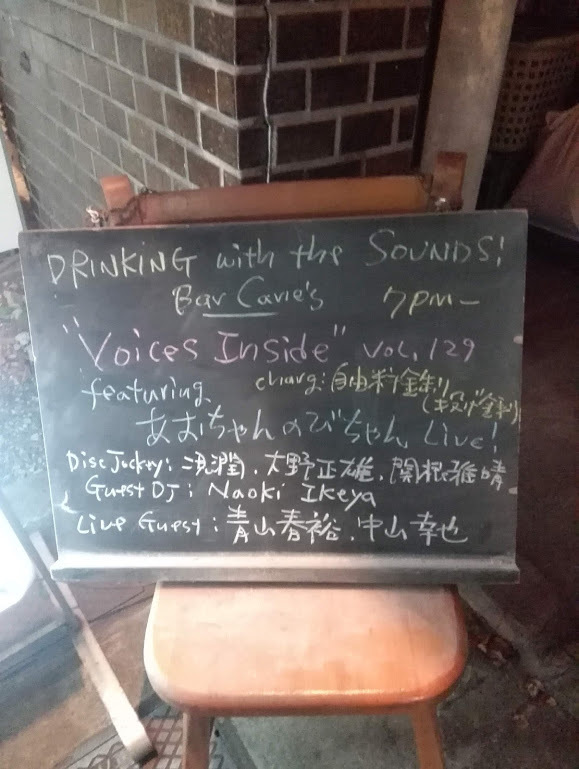 DRINKING with the SOUNDS!
Bar Carie's 7PM—
"Voices Inside" vol, 129
featuring charg: 自由料金制
(投げ銭制)
あおちゃんのびちゃん Live!
Disc Jockey: 潤, 大野正雄, 関根雅晴
Guest DJ: Naoki Ikeya
Live Guest: 青山春裕, 中山幸也